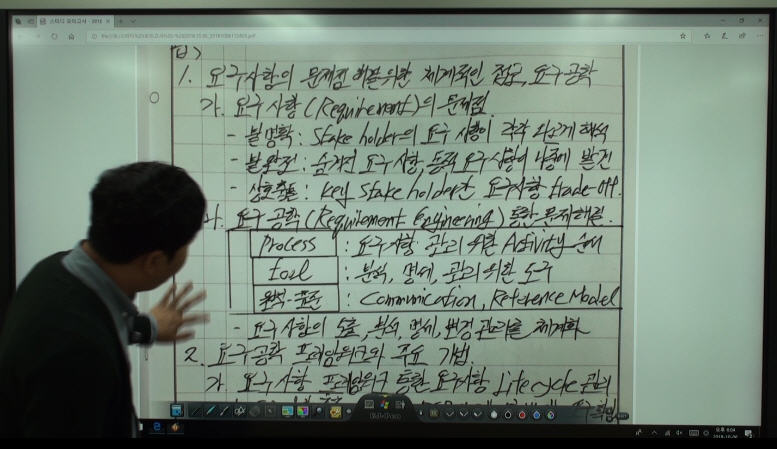 스터디 모의고사 - 2018
답>
1. 요구사항의 문제점 해결 위한 체계적인 접근, 요구공학
가. 요구사항(Requirement)의 문제점
- 불명확 : Stake holder의 요구사항이 각각 다르게 해석
- 불완전 : 숨겨진 요구사항, 등 요구사항이 나중에 발견
- 상호충돌 : Key Stake holder간 요구사항 trade-off.
나. 요구공학(Requirement Engineering) 통한 문제해결
Process : 요구사항 관리 위한 Activity 순서
Tool : 분석, 명세, 관리 위한 도구
원칙·표준 : Communication, Reference Model
- 요구사항의 추출, 분석, 명세, 변경관리를 체계화
2. 요구공학 프레임워크와 주요 기법
가. 요구사항 프레임워크 통한 요구사항 Life cycle 관리
오후 8:04